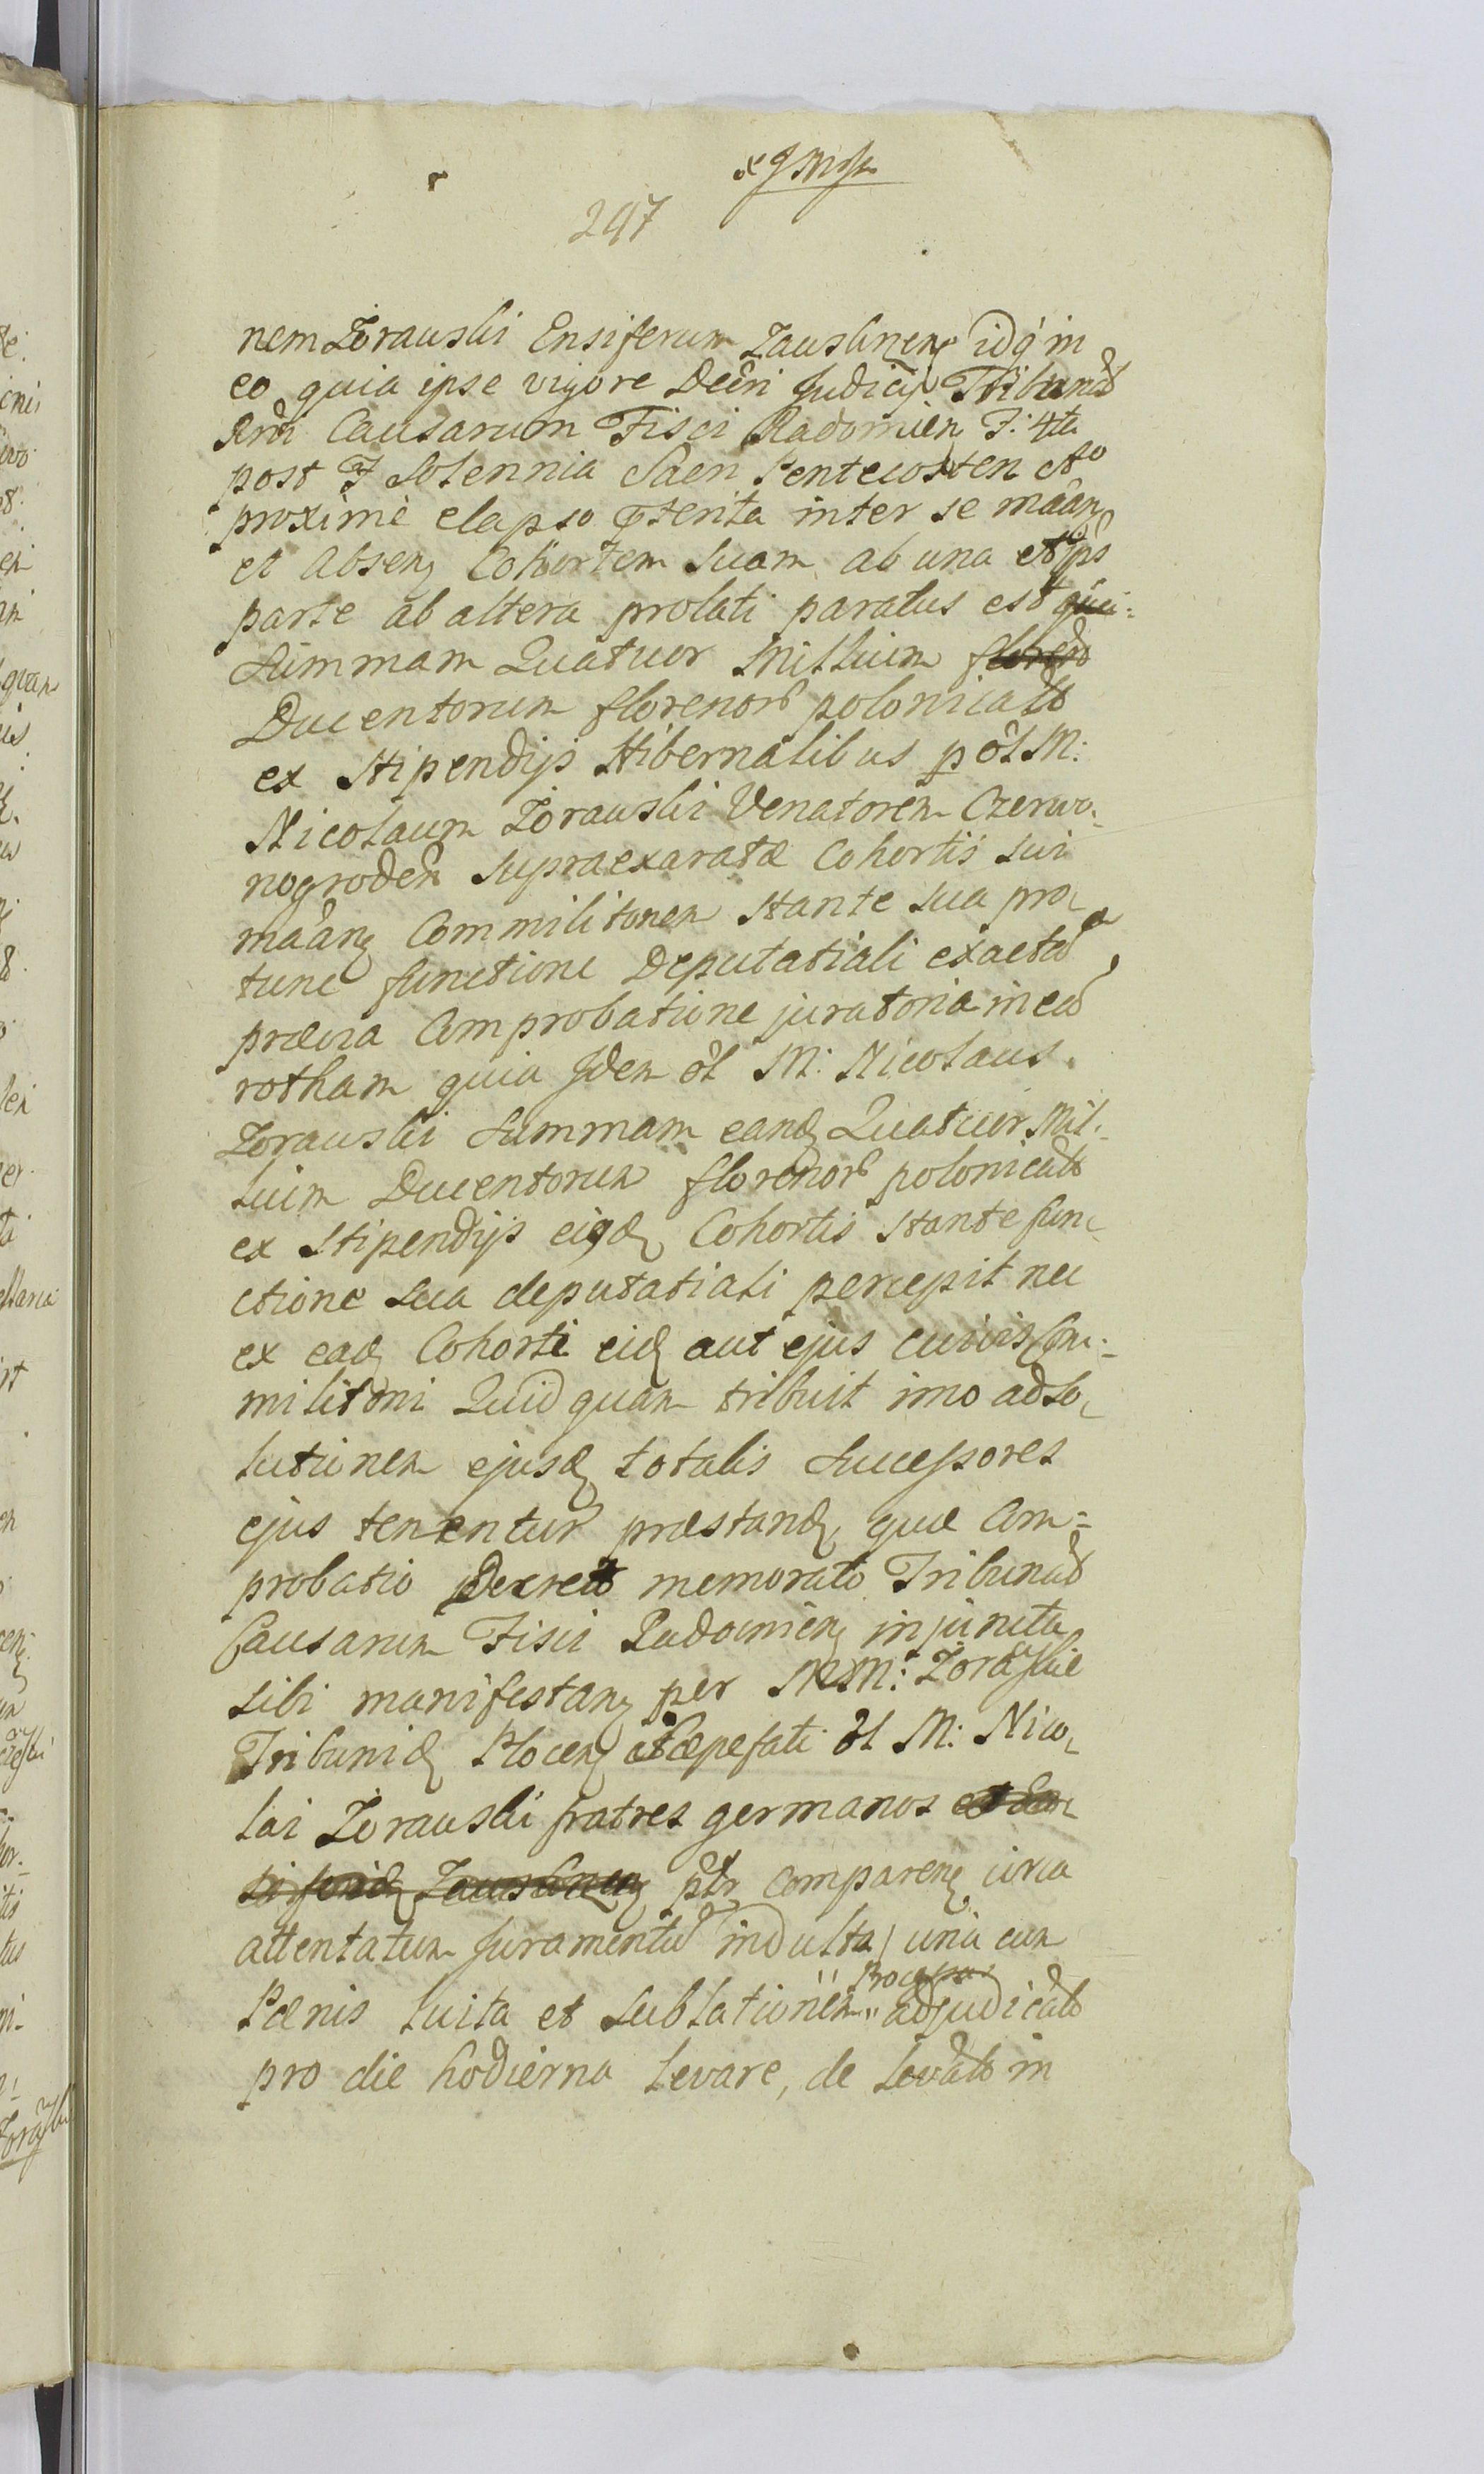 297
nem Żorauski Ensiferum Zauskrzynen idq in
eo quia ipse vigore Decri Judicij Tribunal
Rndi Causarum Fisci Radomien F: 4ta
post F Solennia Sacri Pentecosten Ao
proxime elapso inter se
et Absen Cohortem suam ab una et ips
parte ab altera prolati paratus est qui:
Summam Quatuor Millium floreno
Ducentorum florenor polonical
ex Stipendijs Hibernalibus p ol M:
Nicolaum Żorauski Venatorem Czerwo:
nogroden supraexaratæ Cohortis sui
Commilitonem stante sua pro
tunc functione Deputatiali exacta
prævia Comprobatione juratoria in ea
rotham quia Idem ol M: Nicolaus
Żorauski Summam eand Quatuor Mil:
lium Ducentorum florenor polonical
ex Stipendijs eigd Cohortis stante fun
ctione sua deputatiali percepit nec
ex ead Cohorti eid aut ejus cuivis Com:
militoni Quidquam tribuit imo ad so
lutionem ejusd totalis Successores
ejus tenentur præstand, quæ Com=
probatio Decreto memorato Tribunal
Causarum Fisci Radomien injuncta
sibi manifestan per MM: Żorauskie
Tribunid Plocen et sæpefati ol M: Nico
lai Żorauski fratres germanos et En
siferid Zauskrzynen ptr comparen circa
attentatum Juramentu indulta, una cum
Pœnis luita et sublationem "adjudicato
pro die hodierna levare, de levato in